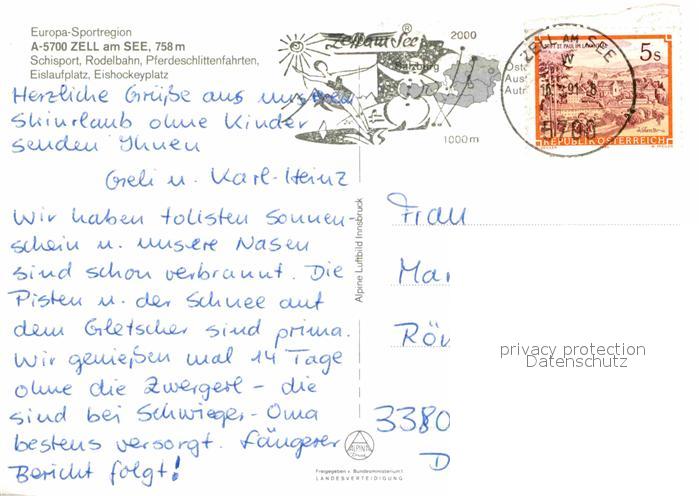 Europa-Sportregion
A-5700 ZELL am SEE, 758 m
Schisport, Rodelbahn, Pferdeschlittenfahrten,
Eislaufplatz, Eishockeyplatz
Herzliche Grüße aus unserem
Skiurlaub ohne Kinder
senden Ihnen
Greli u. Karl-Heinz
Wir haben tollsten Sonnen-
schein u. unsere Nasen
sind schon verbrannt. Die
Pisten u. der Schnee auf
dem Gletscher sind prima.
Wir genießen mal 14 Tage
ohne die Zwergerl - die
sind bei Schwieger-Oma
bestens versorgt. Längerer
Bericht folgt!
Zell am See ®
2000
Salzburg
1000 m
ZELL AM SEE
5700
5 S
REPUBLIK ÖSTERREICH
Alpine Luftbild Innsbruck
Frau
Ma
Rö
3380
D
privacy protection
Datenschutz
ALPINA
Freigegeben v. Bundesministerium f.
LANDESVERTEIDIGUNG